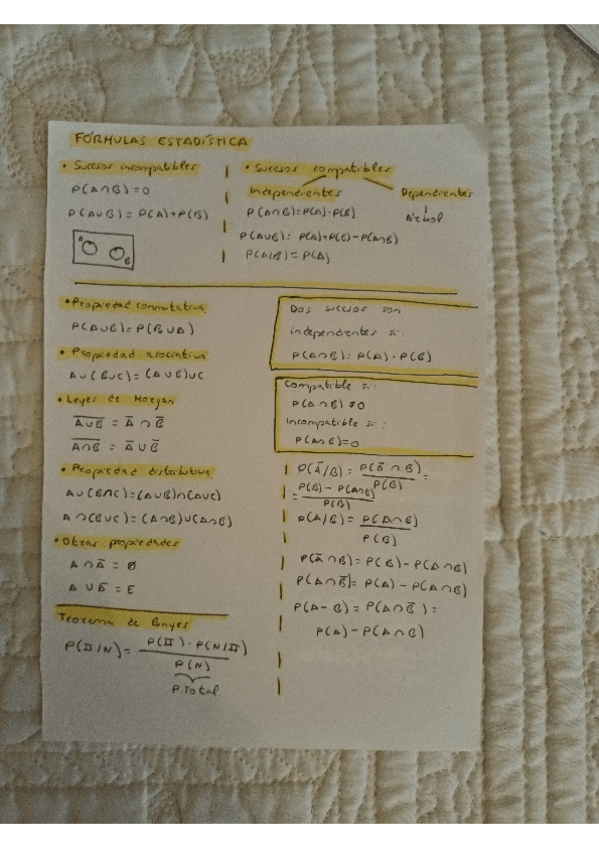 FÓRMULAS ESTADÍSTICA
• Sucesos incompatibles
P(A∩B)=0
P(A∪B) = P(A)+P(B)
A
B
• Sucesos compatibles
Independientes
Dependientes
P(A∩B)=P(A)·P(B)
Árbol
P(A∪B)= P(A)+P(B)-P(A∩B)
P(A/B)=P(A)
• Propiedad conmutativa
P(A∪B)=P(B∪A)
• Propiedad asociativa
A∪(B∪C)=(A∪B)∪C
• Leyes de Morgan
A̅∪̅B̅ = A̅ ∩ B̅
A̅∩̅B̅ = A̅ ∪ B̅
• Propiedad distributiva
A∪(B∩C)=(A∪B)∩(A∪C)
A∩(B∪C)=(A∩B)∪(A∩B)
• Otras propiedades
A∩A̅ = Ø
A∪A̅ = E
Teorema de Bayes
P(II/N)= P(II)·P(N/II)
P(N)
P.Total
Dos sucesos son
independientes si:
P(A∩B)=P(A)·P(B)
Compatible si:
P(A∩B)≠0
Incompatible si:
P(A∩B)=0
P(A̅/B) = P(A̅∩B) =
P(B)
= P(B)-P(A∩B)
P(B)
P(A/B) = P(A∩B)
P(B)
P(A̅∩B)=P(B)-P(A∩B)
P(A∩B̅)=P(A)-P(A∩B)
P(A-B)=P(A∩B̅)=
P(A)-P(A∩B)